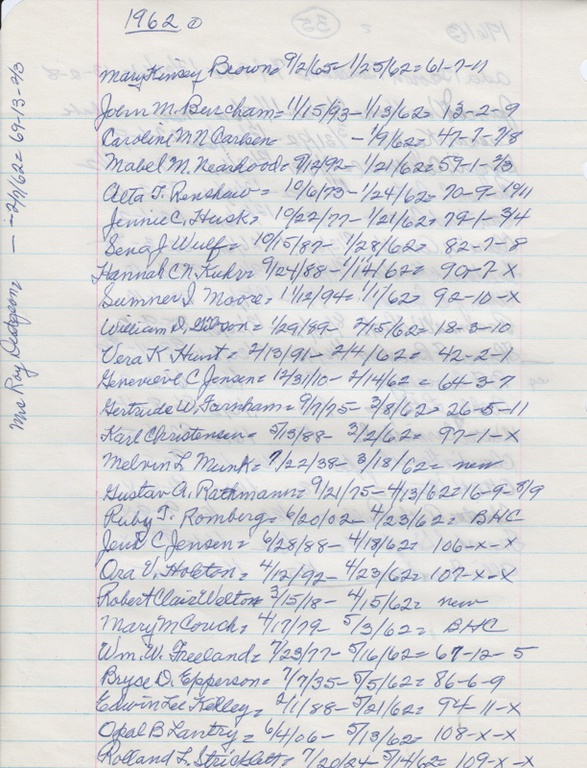 1962 ①
Mary Kinsey Brown = 9/2/65 - 1/25/62 = 61-7-11
John M. Burcham = 11/15/93 - 1/13/62 = 13-2-9
Caroline M N Carlsen - 1/9/62 = 47-7-7/8
Mabel M. Nearhood = 9/12/92 - 1/21/62 = 59-1-2/3
Alta T. Renshaw = 10/6/73 - 1/24/62 = 70-9-10/11
Jennie C. Husk = 10/22/77 - 1/21/62 = 79-1-3/4
Sena J Wulf = 10/15/87 - 1/28/62 = 82-7-8
Hannah C N Kuhr = 9/24/88 - 1/14/62 = 90-7-X
Sumner I. Moore = 11/12/94 = 1/1/62 = 92-10-X
William D. Gibson = 1/29/89 - 2/15/62 = 18-3-10
Vera K Hunt = 2/13/91 - 2/4/62 = 42-2-1
Genevieve C Jensen = 12/31/10 - 2/14/62 = 64-3-7
Gertrude W. Farnham = 9/7/75 - 3/8/62 = 26-5-11
Karl Christensen = 5/13/88 - 3/2/62 = 97-1-X
Melvin L Munk = 7/22/38 - 3/18/62 = new
Gustav A. Rathmann = 9/21/75 - 4/13/62 = 16-9-8/9
Ruby T. Romberg = 6/20/02 - 4/23/62 = BHC
Jens C Jensen = 6/28/88 - 4/18/62 = 106-X-X
Ora V. Holton = 4/12/92 - 4/23/62 = 107-X-X
Robert Clair Welton 3/15/18 - 4/15/62 = new
Mary M Couch = 4/17/79 5/3/62 = BHC
Wm. W. Freeland = 7/23/77 - 5/16/62 = 67-12-5
Bryse D. Epperson = 7/7/35 - 5/5/62 = 86-6-9
Edwin Lee Kelley = 2/11/88 - 5/21/62 = 94-11-X
Opal B Lantry = 6/4/06 - 5/13/62 = 108-X-X
Rolland L. Stricklett = 7/20/24 - 5/14/62 = 109-X-X
Mrs Roy Dodgson — - 2/7/62 = 69-13-2/3